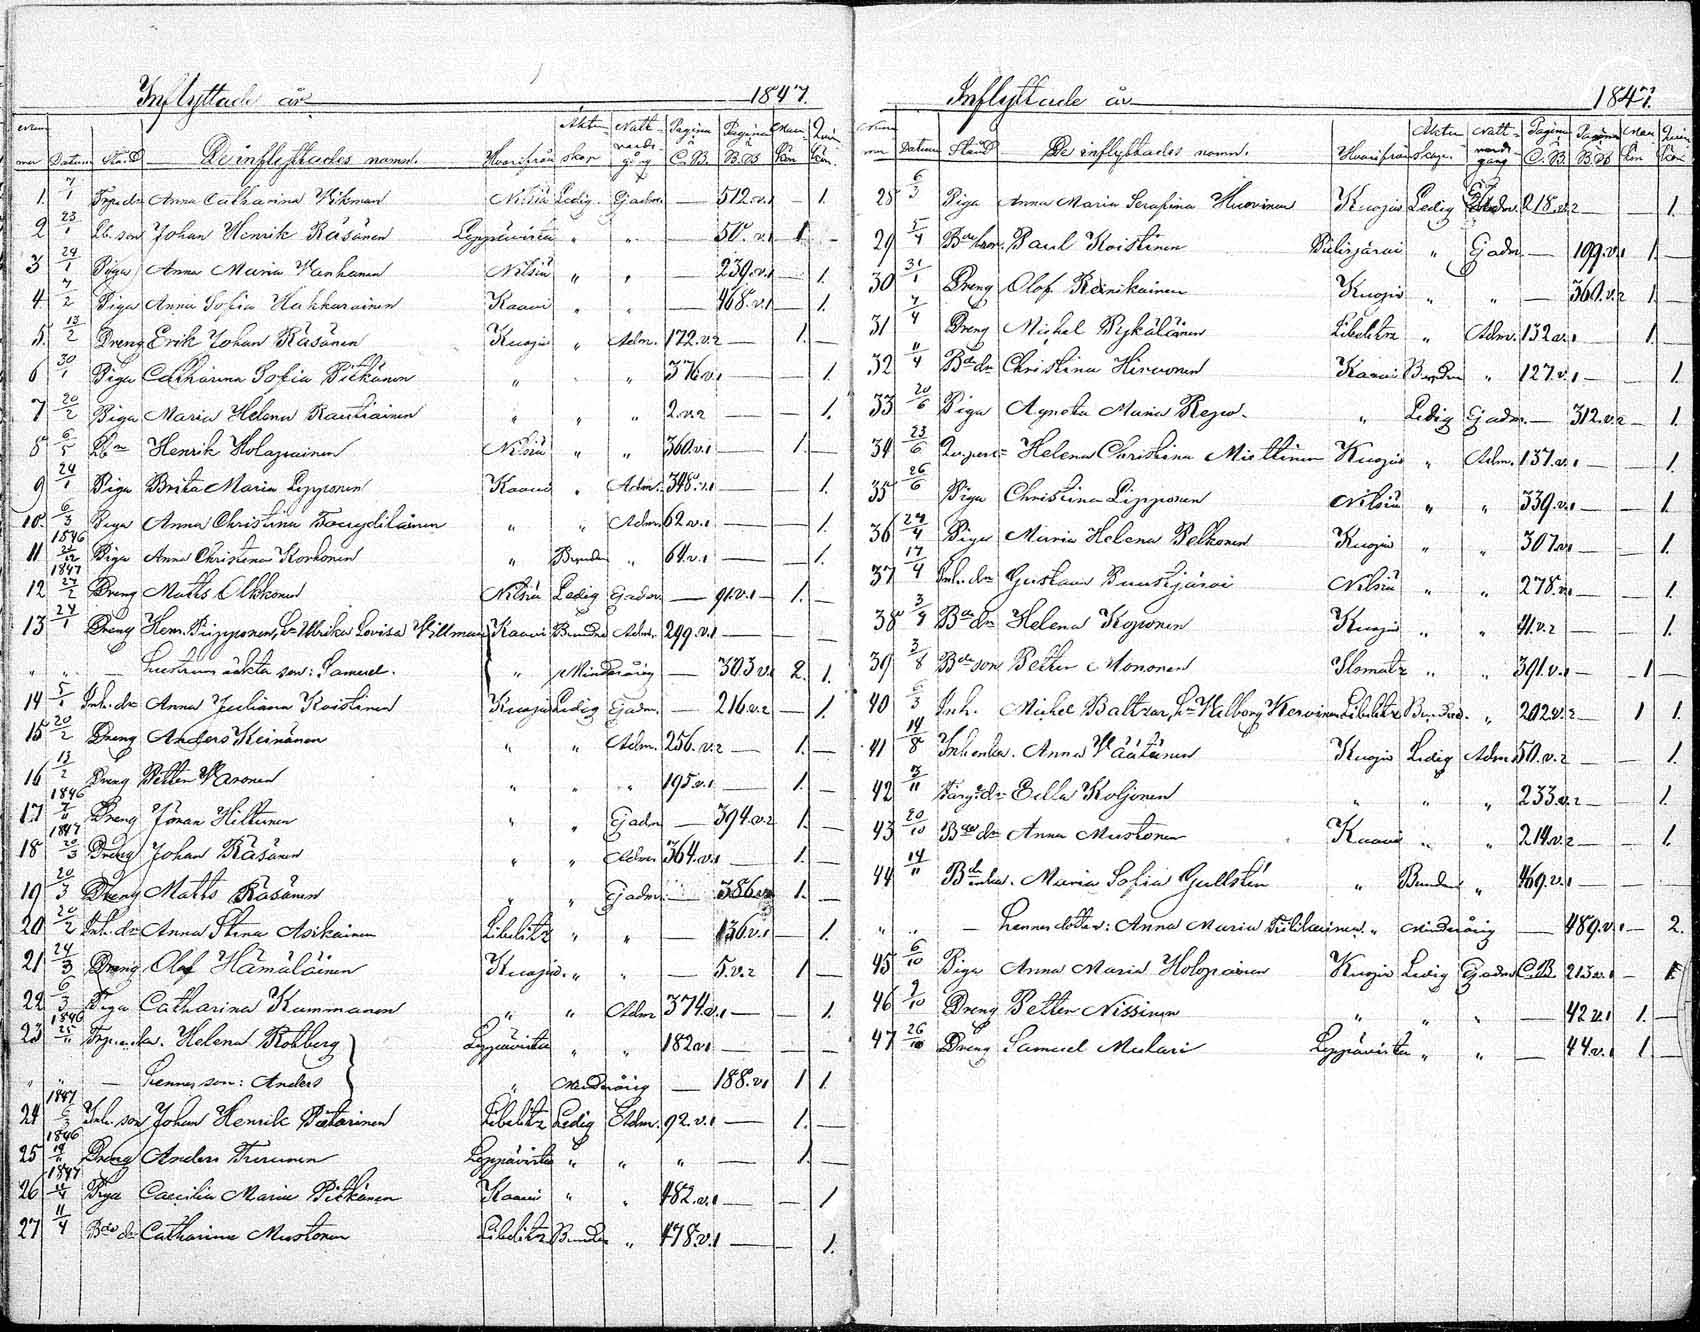 Inflyttade år 1847.
Nummer Datum Stånd De inflyttades namn. Hvarifrån Äktenskap Nattvardsgång Pagina å C.B. Pagina å B.B. Mankön Qvinkön.
1. 7/1 Anna Catharina Wikman Nilsiä Ledig Ej adm. — 512.v.1 — 1.
2 23/1 Lb. son Johan Henrik Räsänen Leppävirta " " — 50.v.1 1 —
3 24/1 Piga Anna Maria Vanhanen Nilsiä " " — 239.v.1 — 1.
4. 7/2 Piga Anna Sofia Hakkarainen Kaavi " " — 468.v.1 — 1.
5. 13/2 Dreng Erik Johan Räsänen Kuopio " Adm. 172.v.2 — 1. —
6 30/1 Piga Catharina Sofia Pitkänen " " 376.v.1 — — 1.
7 20/2 Piga Maria Helena Rautiainen " " " 2.v.2 — — 1.
8 6/5 Lbn Henrik Holapainen Nilsiä " " 360.v.1 — 1. —
9 24/1 Piga Brita Maria Lipponen Kaavi " Adm. 348.v.1 — — 1.
10 6/3 Piga Anna Christina " " Adm 62.v.1 — 1.
1846
11 21/12 Piga Anna Christina Korhonen " Bunden " 64.v.1 — — 1.
1847
12 27/2 Dreng Matts Olkkonen Nilsiä Ledig Ej adm — 91.v.1 1. —
13 24/1 Dreng Henr. Piipponen, h. Ulrika Lovisa Villman Kaavi Bundne Adm. 299.v.1 — — —
" " — hustruns oäkta son: Samuel. " Minderårig — 303 v.1 2. 1.
14 5/1 Inh. dr Anna Juliana Koistinen Kuopio Ledig Ej adm. — 216.v.2 — 1.
15 20/2 Dreng Anders Keinänen " " Adm. 256.v.2 — 1. —
16 13/2 Dreng Petter Varonen " " " 195.v.1 — 1. —
1846
17 7/11 Dreng Jöran Hiltunen " " Ej adm — 394.v.2 1. —
1847
18 20/3 Dreng Johan Räsänen " " Adm 364.v.1 — 1. —
19 20/3 Dreng Matts Räsänen " " Ej adm. — 386 1. —
20 20/2 Inh. dr Anna Stina Asikainen Libelitz " " — 136.v.1 — 1.
21 24/3 Dreng Olof Hämäläinen Kuopio. " " — 5.v.2 1 —
22 6/3 Piga Catharina Kummanen " " Adm 374.v.1 — — 1.
1846
23 25/11 Helena Rotberg Leppävirta " " 182.v.1 — — —
" " — hennes son: Anders " Minderårig — 188.v.1 1 1.
1847
24 6/3 Inh. son Johan Henrik Pitarinen Libelitz Ledig Adm. 92.v.1 — 1. —
1846
25 Dreng Anders Turunen Leppävirta " " " — 1. —
1847
26 Piga Caecilia Maria Pitkänen Kaavi " " 482.v.1 — — 1
27 11/4 Bde dr Catharina Mustonen Libelitz Bunden " 478.v.1 — — 1.
Inflyttade år 1847.
Nummer Datum Stånd De inflyttades namn. Hvarifrån Äktenskap. Nattvardsgång Pagina å C.B. Pagina å B.B. Mankön Qvinkön.
28 6/3 Piga Anna Maria Serafina Huovinen Kuopio Ledig Adm. 218.v.2 — — 1.
29 5/4 Paul Koistinen Pielisjärvi " Ej adm. — 109.v.1 1. —
30 31/1 Dreng Olof Reinikainen Kuopio " " — 360.v.2 1. —
31 7/4 Dreng Michel Pykäläinen Libelitz " Adm. 132.v.1 — 1. —
32 11/4 Bde dr Christina Hirvonen Kaavi Bunden " 127.v.1 — — 1.
33 20/6 Piga Agneta Maria Repo. " Ledig Ej adm. — 312.v.2 — 1.
34 23/6 Helena Christina Miettinen Kuopio " Adm. 137.v.1 — — 1.
35 26/6 Piga Christina Lipponen Nilsiä " " 339.v.1 — — 1.
36 24/4 Piga Maria Helena Pelkonen Kuopio " " 307.v.1 — — 1.
37 17/4 Inh. dr Gustava Puustjärvi Nilsiä " " 278.v.1 — — 1.
38 Bde dr Helena Koponen Kuopio " " 41.v.2 — — 1.
39 3/8 Bde son Petter Mononen Ilomatz " " 391.v.1 — 1 —
40 6/3 Inh. Michel Baltzar, h. Valborg Kervinen Libelitz Bundne. " 202.v.2 — 1 1.
41 14/8 Inh enka. Anna Väätäinen Kuopio Ledig Adm 50.v.2 — — 1.
42 Eella Koljonen " " " 233.v.2 — — 1.
43 20/10 Bde dr Anna Mustonen Kaavi " " 214.v.2 — — 1.
44 14/11 Bde enka. Maria Sofia Gullstén " Bunden " 469.v.1 — — —
" " — hennes dotter: Anna Maria " Minderårig — 489.v.1 — 2.
45 6/10 Piga Anna Maria Holopainen Kuopio Ledig Ej adm C.B. 213.v.1 — 1.
46 2/10 Dreng Petter Nissinen " " " — 42 v.1 1. —
47 26/10 Dreng Samuel Mulari Leppävirta " " — 44.v.1 1 —